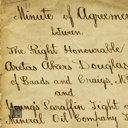 Minute of Agreement
between
The Right Honourable
Aretas Akers Douglas
of Baads and Craigs, M
and
Young's Paraffin Light
Mineral Oil Company